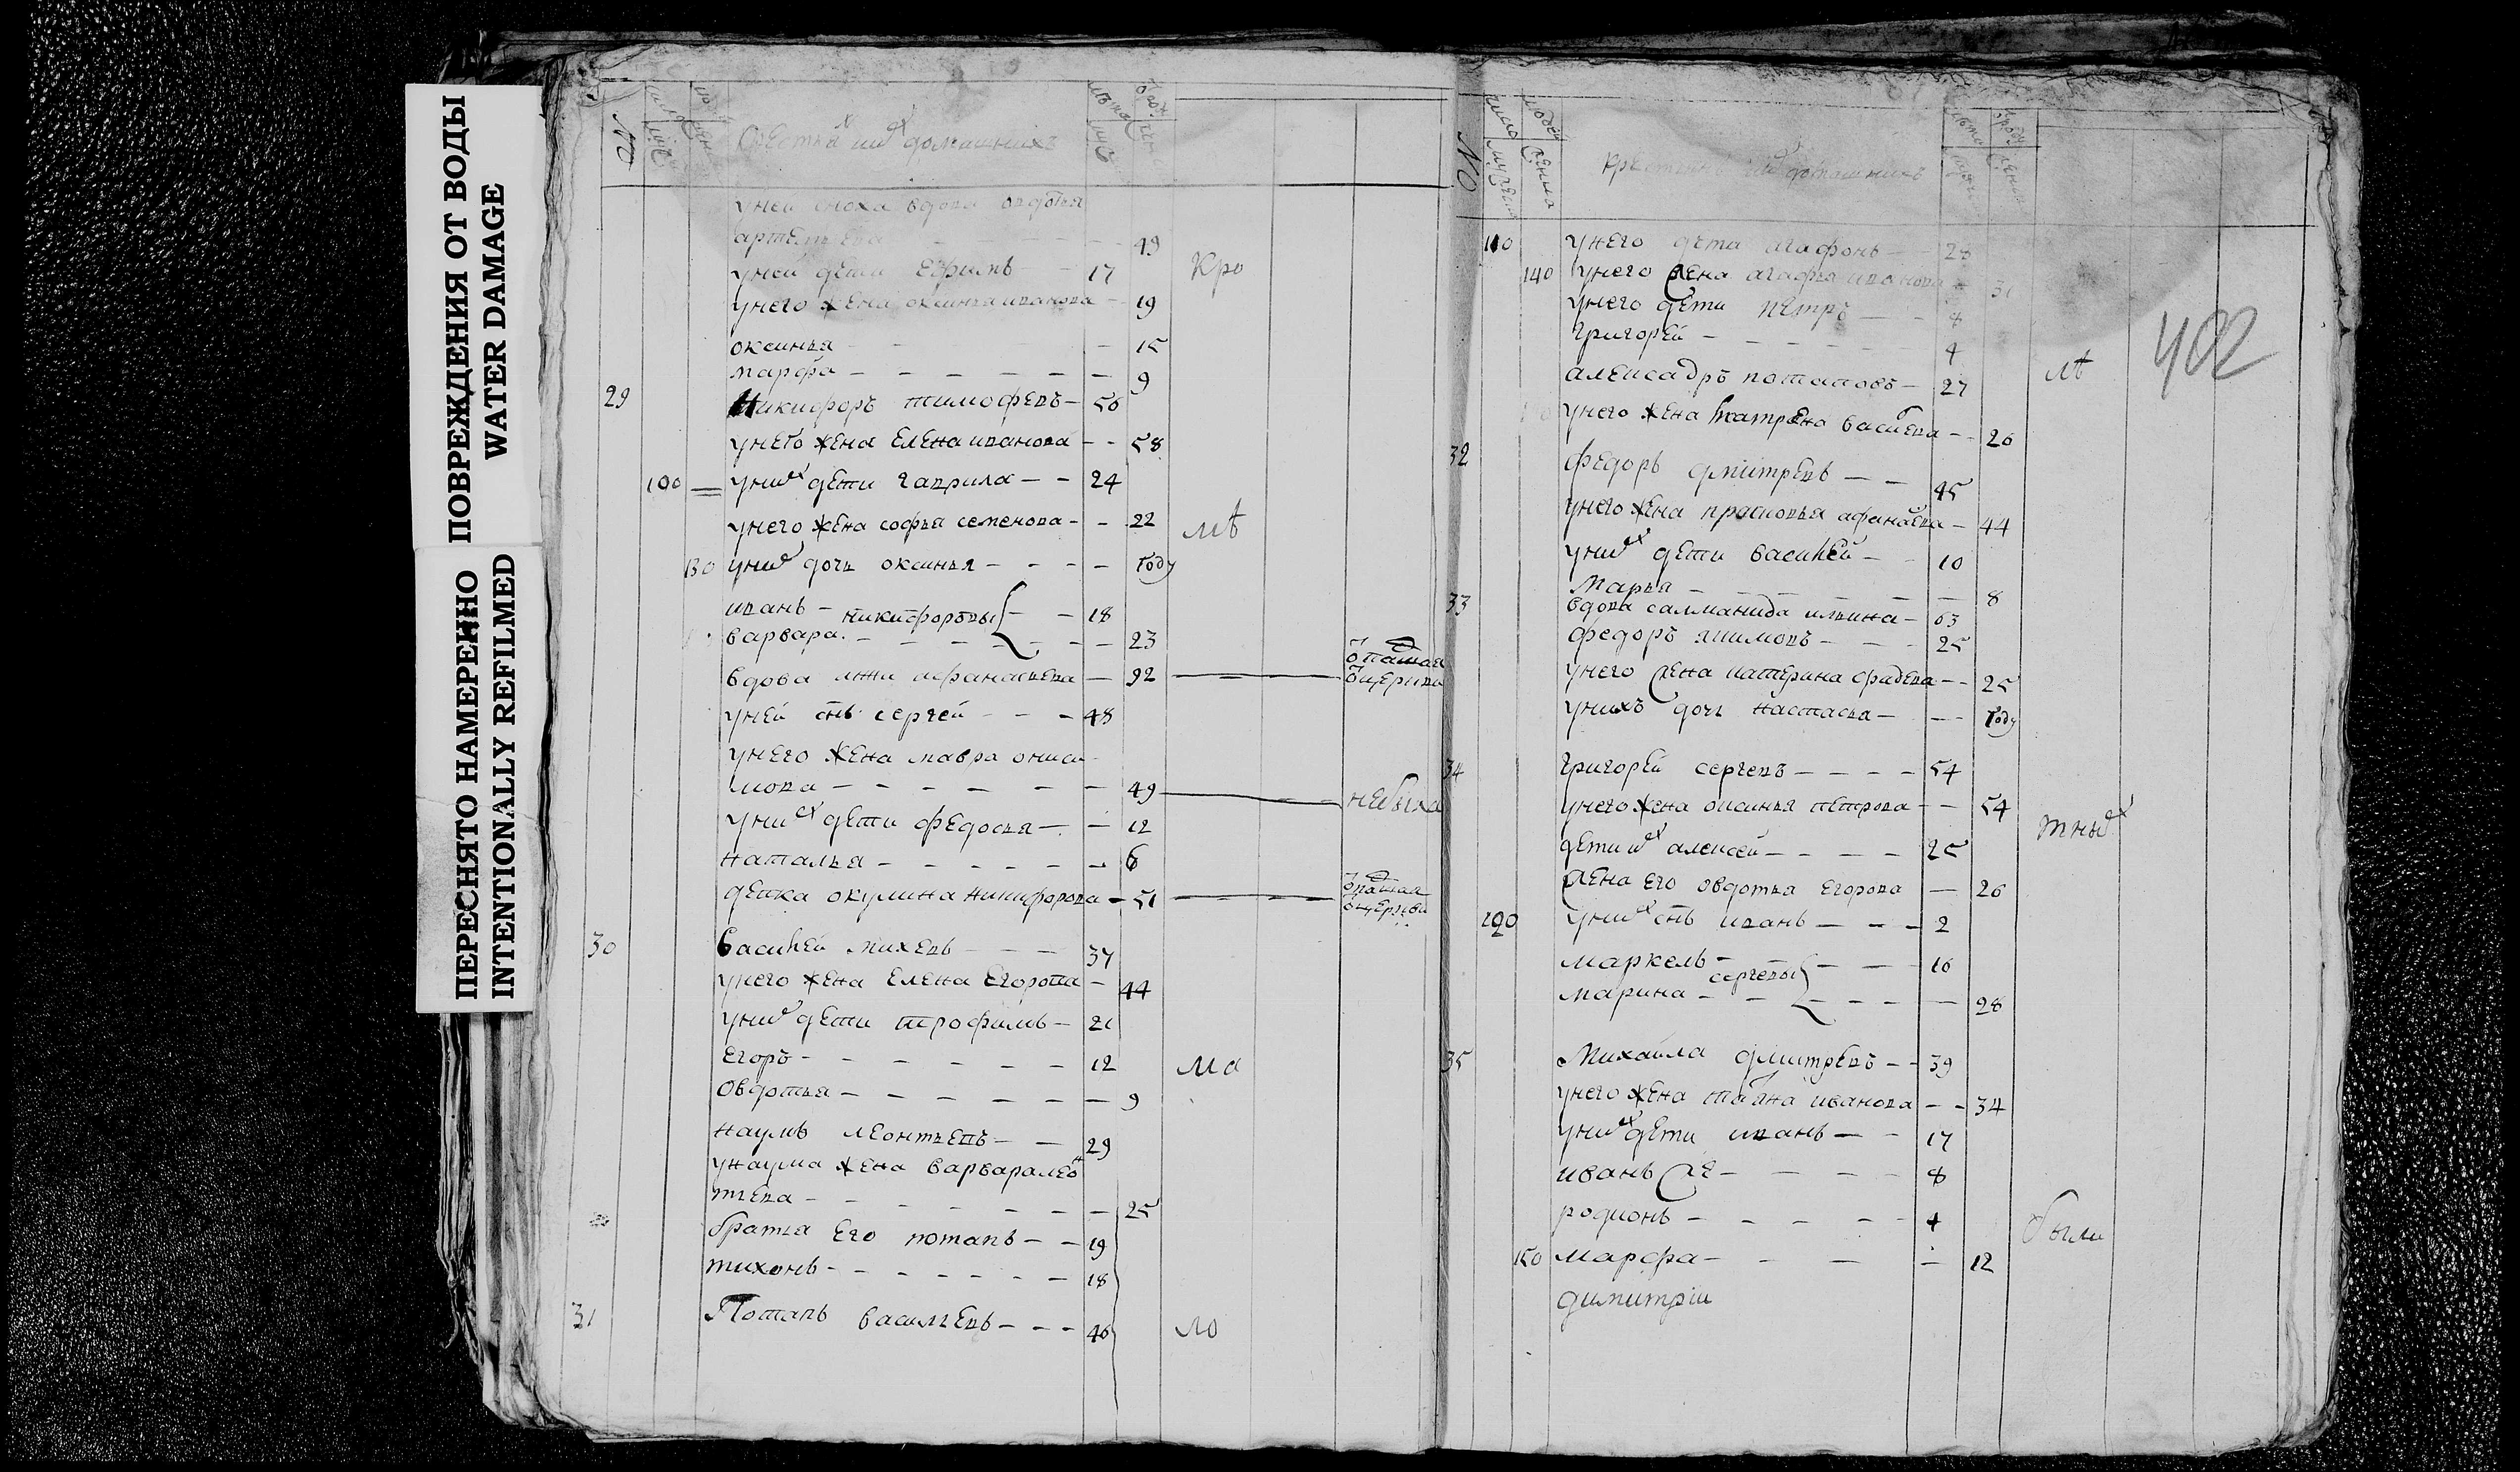 ПОВРЕЖДЕНИЯ ОТ ВОДЫ
WATER DAMAGE
ПЕРЕСНЯТО НАМЕРЕННО
INTENTIONALLY REFILMED
№
домашнихъ
уней сноха вдова овдотья
49
уней дети Ефримъ — 17
Кро
унего жена оксинья иванова — 19
оксинья — 15
марфа — 9
29 Никифоръ тимофевъ — 56
унего жена Елена иванова — 58
100 = униx дети гаврила — 24
унего жена софья семенова — 22
мѣ
130 униx дочь оксинья — году
иванъ — никифоровы — 18
варвара — 23
вдова афанасьева — 92
уней снъ сергей — 48
унего жена мавра ониси
мова — 49 — небыла
униx дети федосья — 12
наталья — 6
девка окулина никифорова — 51
30 василей михевъ — 37
унего жена Елена Егорова — 44
униx дети трофимъ — 21
Егоръ — 12
ма
Овдотья — 9
наумъ леонтьевъ — 29
унаума жена варвара лео
тьева — 25
братья Его потапъ — 19
тихонъ — 18
31 Потапъ васильевъ — 46
ло
№
110 унего дети агафонъ — 28
140 унего жена агафья иванова — 31
унего дети петръ — 8
григорей — 4
алексадръ потаповъ — 27
лѣ
402
унего жена катрена васиева — 26
32 федоръ дмитревъ — 45
унего жена прасковья афанаева — 44
униx дети василей — 10
Марья — 8
33 вдова салманида ильина — 63
федоръ якимовъ — 25
унего жена катерина фадева — 25
унихъ дочь настасья — году
34 григорей сергевъ — 54
унего жена оксинья петрова — 54
тныx
дети иx алексей — 25
жена Его овдотья Егорова — 26
120 униx снъ иванъ — 2
маркель — сергевы — 16
марина — 28
35 Михаила дмитревъ — 39
унего жена татяна иванова — 34
униx дети иванъ — 17
иванъ же — 8
родионъ — 4
были
150 марфа — 12
димитрiи